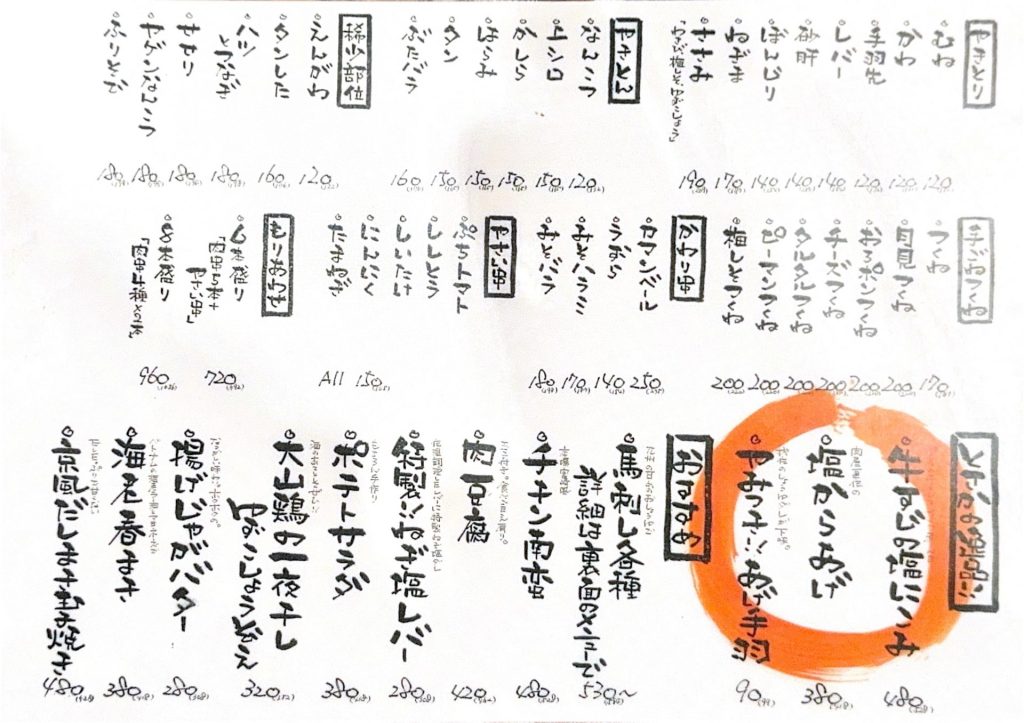 やきとり
むね 120
かわ 120
手羽先 120
レバー 140
砂肝 140
ぼんじり 140
ねぎま 170
ささみ 190
「わさび、梅しそ、ゆずこしょう」
やきとん
なんこつ 120
シロ 150
かしら 150
はらみ 150
タン 150
ぶたバラ 160
稀少部位
えんがわ 120
タンした 160
ハツ
つなぎ 180
セセリ 180
やげんなんこつ 180
ふりそで 180
手ごねつくね
つくね 170
月見つくね 200
おろポンつくね 200
チーズつくね 200
タルタルつくね 200
ピーマンつくね 200
梅しそつくね 200
かわり串
カマンベール 250
うずら 140
みそハラミ 170
みそバラ 180
やさい串
ぷちトマト
ししとう
しいたけ
にんにく
たまねぎ
All 150
もりあわせ
6本盛り
「肉串5本+
やさい串」
720
8本盛り
960
とさかの名物!!
牛すじの塩にこみ 480
塩からあげ 380
やみつき!!あげ手羽 90
おすすめ
馬刺し各種
詳細は裏面のメニューで 530〜
チキン南蛮 480
肉豆腐 420
特製!!ねぎ塩レバー 280
ポテトサラダ 380
大山鶏の一夜干し
ゆずこしょう添え 320
揚げじゃがバター 280
海老春まき 380
京風だしまき玉子焼き 480